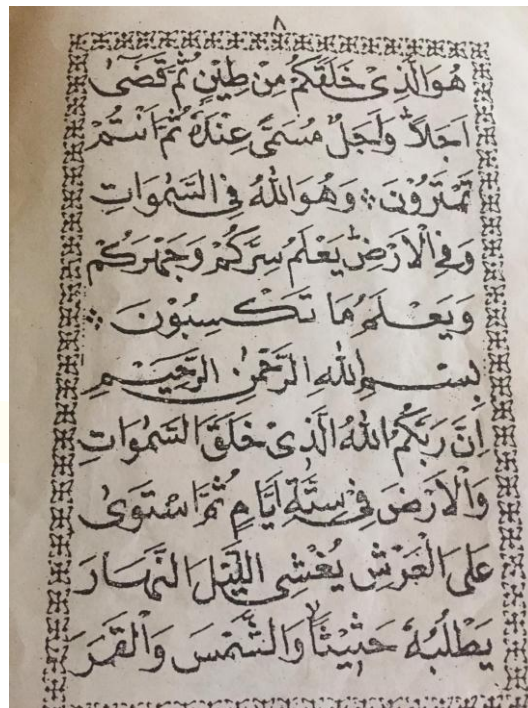 ٨
هُوَ الَّذِىْ خَلَقَكُمْ مِنْ طِيْنٍ ثُمَّ قَضٰى
اَجَلًا ؕ وَاَجَلٌ مُسَمًّى عِنْدَهٗ ثُمَّ اَنْتُمْ
تَمْتَرُوْنَ ۞ وَهُوَ اللّٰهُ فِى السَّمٰوَاتِ
وَفِى الْاَرْضِ ؕ يَعْلَمُ سِرَّكُمْ وَجَهْرَكُمْ
وَيَعْلَمُ مَا تَكْسِبُوْنَ ۞
بِسْمِ اللّٰهِ الرَّحْمٰنِ الرَّحِيْمِ
اِنَّ رَبَّكُمُ اللّٰهُ الَّذِىْ خَلَقَ السَّمٰوَاتِ
وَالْاَرْضَ فِىْ سِتَّةِ اَيَّامٍ ثُمَّ اسْتَوٰى
عَلَى الْعَرْشِ يُغْشِى اللَّيْلَ النَّهَارَ
يَطْلُبُهٗ حَثِيْثًا ۙ وَالشَّمْسَ وَالْقَمَرَ